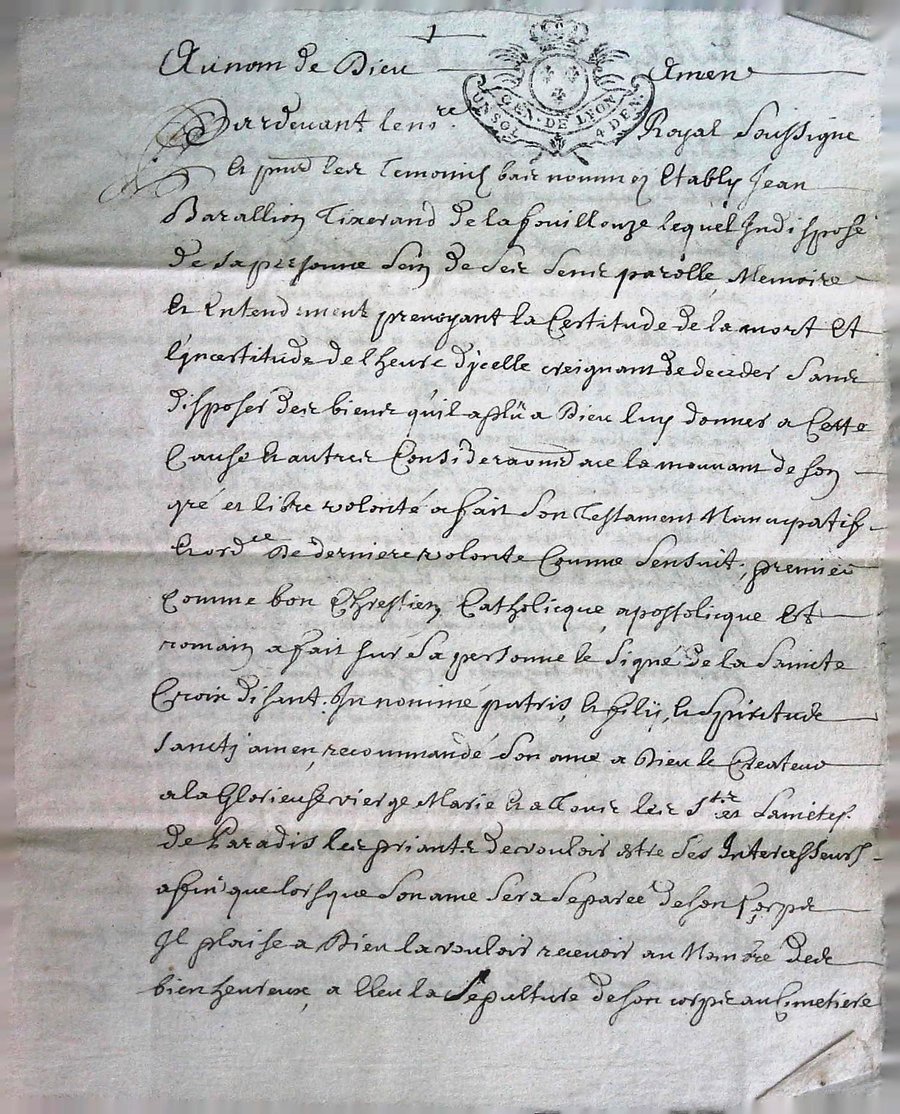 1
Au nom de Dieu Amen
GEN. DE LYON
UN SOL 4 DEN.
Pardevant le no.re Royal Soussigné
et pnts les Temoins bas nommez Estably Jean
Barallion Tixerand de la fouillouze lequel Indisposé
de sa personne sein de ses sens parolle, Memoire
et Entendement prevoyant la Certitude de la mort Et
l'jncertitude de l'heure d'jcelle creignant de deceder sans
disposer des biens qu'il a plû a Dieu luy donner a Cette
Cause et autres Considera̅ons a ce la mouvant de son
gré et libre volonté a fait son Testament Nuncupatif
et ord.ce De derniere volonte Comme sensuit, premier
comme bon Chrestien Catholicque, apostolicque Et
romain a fait sur sa personne le signe de la Saincte
Croix disant: In nominé patris, et filij, et Spiritude
sanctj amen, recommandé son ame a Dieu le Createur
a la Glorieuse vierge Marie et a Tous les S.ts et
de Paradis les priants de vouloir estre ses Intercesseurs
affin que lors que son ame sera separeé de son Corps
Il plaise a Dieu la vouloir recevoir au Nombre des
bien heureux, a Eleu la Sepulture de son corps au Cimetiere